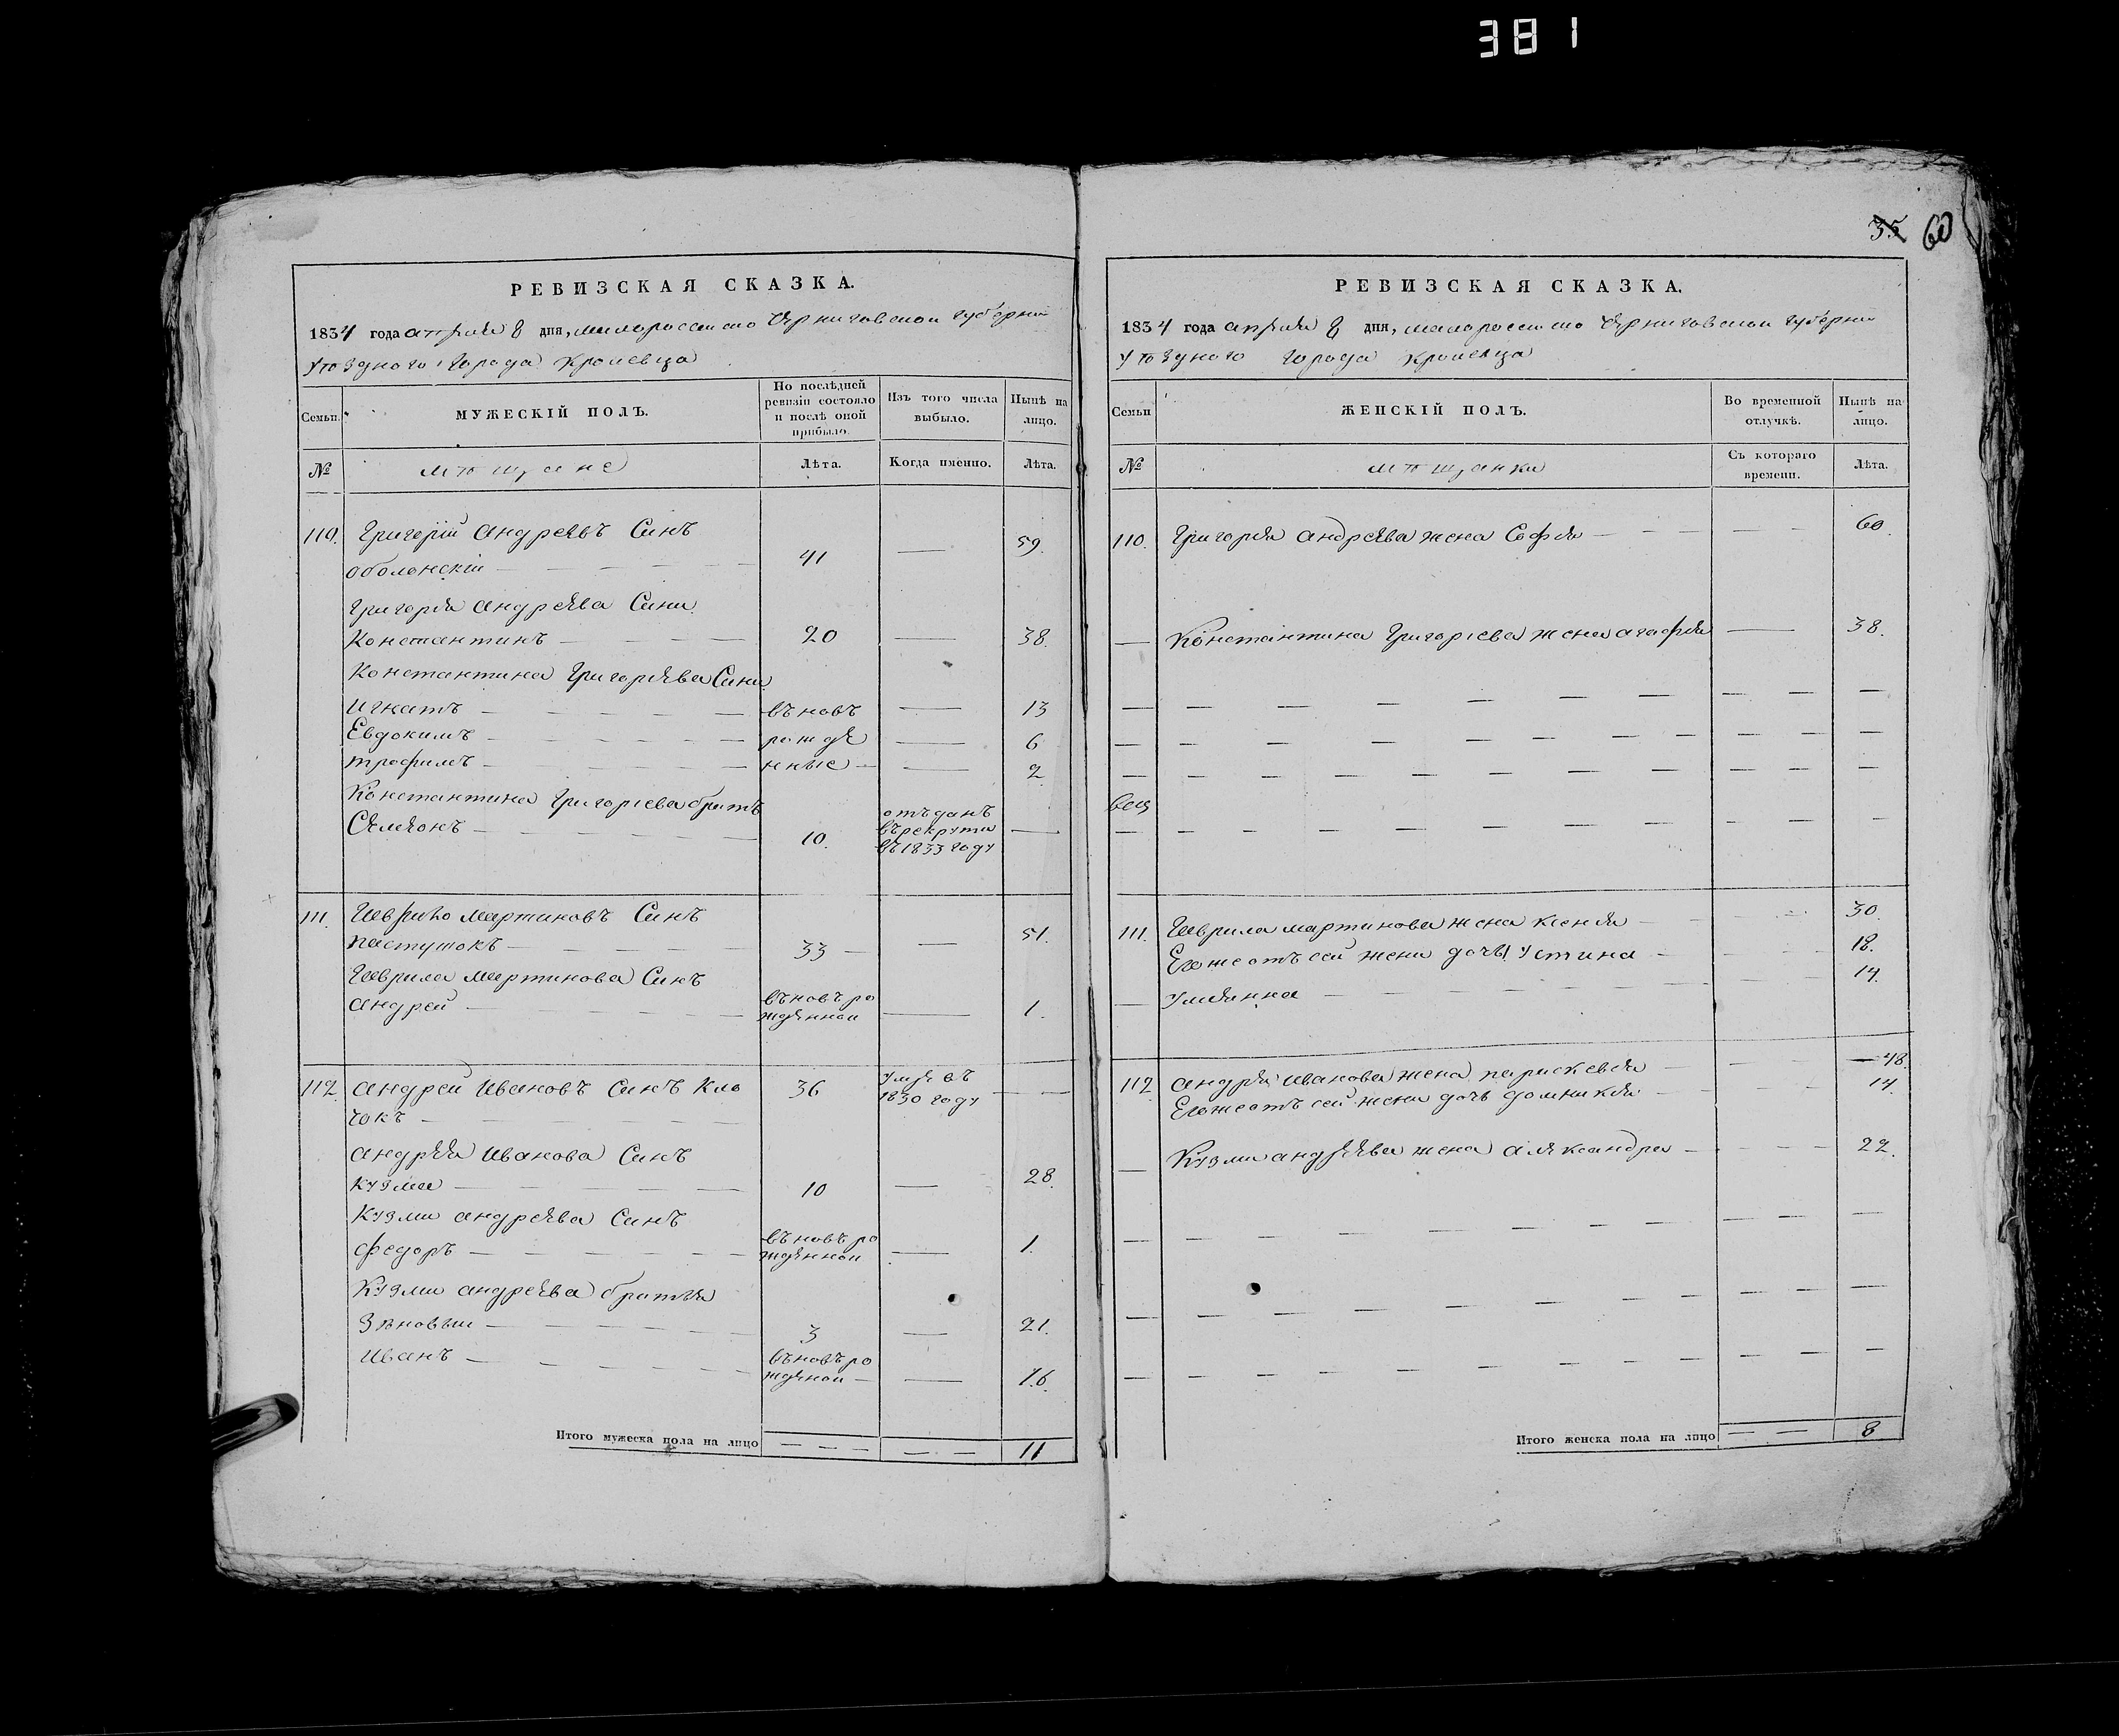 381
35 60
РЕВИЗСКАЯ СКАЗКА.
1834 года апреля 8 дня, малороссийско Черниговской губернии
уѣздного города Кролевца
Семьи.
МУЖЕСКІЙ ПОЛЪ.
По послѣдней ревизіи состояло и послѣ оной прибыло.
Изъ того числа выбыло.
Нынѣ на лицо.
№
мѣщане
Лѣта.
Когда именно.
Лѣта.
110. Григорій Андреевъ Синъ
Оболонскій 41 59.
Григорія Андреева Сини
Константинъ 20 38.
Константина Григорьева Сини
Игнатъ въновъ 13
Евдокимъ рожде 6
Трофимъ нные 2
Константина Григоріева братъ
Семенъ 10. отъданъ
въ рекрути
въ 1833 году
111. Гаврило Мартиновъ Синъ
Пастушокъ 33 51.
Гаврила Мартинова Синъ
Андрей въновъ ро
жденной 1.
112. Андрей Ивановъ Синъ Кло 36 умре въ
чокъ 1830 году
Андрея Иванова Синъ
Кузма 10 28.
Кузми Андреева Синъ
Федоръ въновъ ро
жденной 1.
Кузми Андреева братья
Зѣновѣи 3 21.
Иванъ въновъ ро
жденой 16.
Итого мужеска пола на лицо 11
РЕВИЗСКАЯ СКАЗКА.
1834 года апреля 8 дня, малороссийско Черниговской губернии
уѣздного города Кролевца
Семьи
ЖЕНСКІЙ ПОЛЪ.
Во временной отлучкѣ.
Нынѣ на лицо.
№
мѣщанки
Съ котораго времени.
Лѣта.
110. Григорія Андреева жена Софія 60.
Константина Григоріева жена Агафія 38.
111. Гаврила Мартинова жена Ксенія 30.
Его же отъ сей жени дочь Устина 18.
Улиянна 14.
112 Андрея Иванова жена Параскевія 48.
Его же отъ сей жени дочъ Домникия 14.
Кузми Андреева жена Александра 22.
Итого женска пола на лицо 8